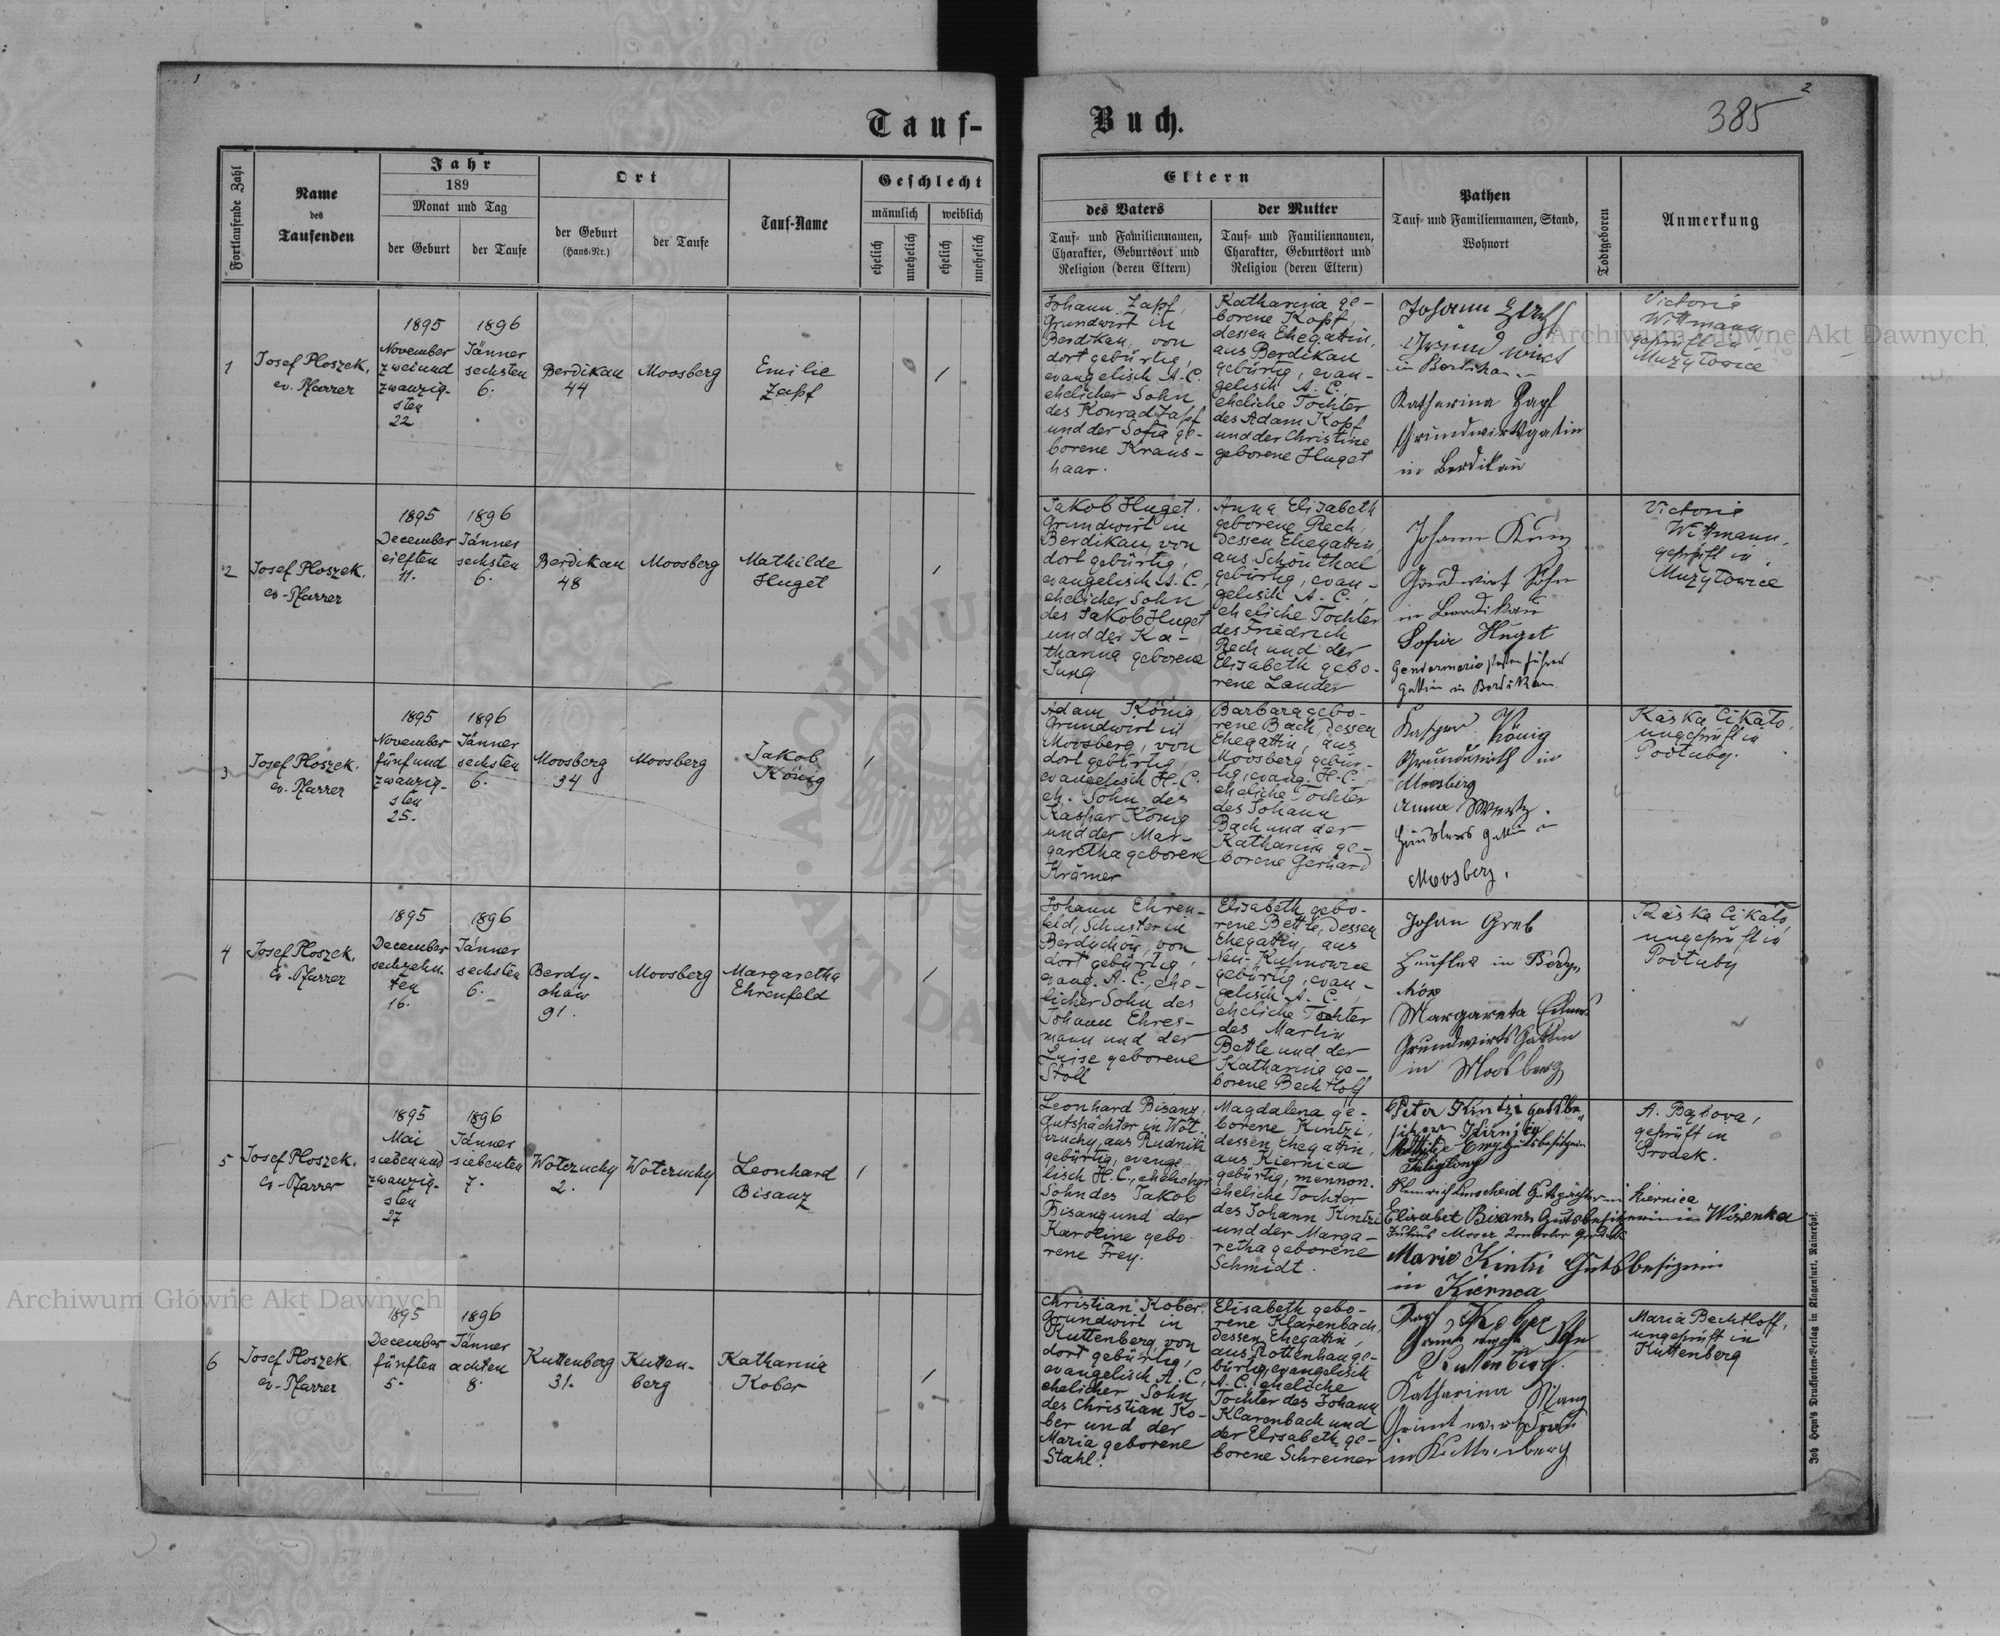 1
2
385
Tauf-
Buch.
Fortlaufende Zahl
Name
des
Taufenden
Jahr
189
Monat und Tag
der Geburt
der Taufe
Ort
der Geburt
(Haus-Nr.)
der Taufe
Tauf-Name
Geschlecht
männlich
weiblich
ehelich
unehelich
ehelich
unehelich
Eltern
des Vaters
Tauf- und Familiennamen,
Charakter, Geburtsort und
Religion (deren Eltern)
der Mutter
Tauf- und Familiennamen,
Charakter, Geburtsort und
Religion (deren Eltern)
Pathen
Tauf- und Familiennamen, Stand,
Wohnort
Todtgeboren
Anmerkung
1
Josef Ploszek,
ev. Pfarrer
1895
November
zweiund
zwanzig-
sten
22
1896
Jänner
sechsten
6.
Berdikau
44
Moosberg
Emilie
Zapf
1
Johann Zapf,
Grundwirt in
Berdikau, von
dort gebürtig,
evangelisch A.C.
ehelicher Sohn
des Konrad Zapf
und der Sofia ge-
borene Kraus-
haar.
Katharina ge-
borene Kopf,
dessen Ehegattin,
aus Berdikau
gebürtig, evan-
gelisch A. C.
eheliche Tochter
des Adam Kopf
und der Christine
geborene Huget
Johann
Grundwirt
in Berdikau
Katharina Zapf
Grundwirthsgatin
in Berdikau
Victoria
Wittmann
geprüft in
Mużyłowice
2
Josef Ploszek.
ev-Pfarrer
1895
December
eilften
11.
1896
Jänner
sechsten
6.
Berdikau
48
Moosberg
Mathilde
Huget
1
Jakob Huget,
Grundwirt in
Berdikau, von
dort gebürtig,
evangelisch A. C.,
ehelicher Sohn
des Jakob Huget
und der Ka-
tharina geborene
Jung
Anna Elisabeth
geborene Rech,
dessen Ehegattin,
aus Schönthal
gebürtig, evan-
gelisch A. C.,
eheliche Tochter
des Friedrich
Rech und der
Elisabeth gebo-
rene Lander
Johann Kunz
Grundwirt Sohn
in Berdikau
Sofia Huget
Gendarmerie Postenführer
Gattin in Berdikau
Victoria
Wittmann,
geprüft in
Mużyłowice
3
Josef Ploszek.
ev. Pfarrer
1895
November
fünfund
zwanzig-
sten
25.
1896
Jänner
sechsten
6.
Moosberg
34
Moosberg
Jakob
König
1
Adam König,
Grundwirt in
Moosberg, von
dort gebürtig,
evangelisch H.C.
eh. Sohn des
Kaspar König
und der Mar-
garetha geborene
Krämer
Barbara gebo-
rene Bach, dessen
Ehegattin, aus
Moosberg gebür-
tig, evang. H.C.,
eheliche Tochter
des Johann
Bach und der
Katharina ge-
borene Gerhard
Kasper König
Grundwirth in
Moosberg
Anna
Häuslers Gattin in
Moosberg.
Káska Cikało,
ungeprüft in
Podłuby.
4
Josef Ploszek,
ev-Pfarrer
1895
December
sechzehn-
ten
16.
1896
Jänner
sechsten
6.
Berdy-
chów
91.
Moosberg
Margaretha
Ehrenfeld
1
Johann Ehren-
feld, Schuster in
Berdychów, von
dort gebürtig,
evang. A.C., ehe-
licher Sohn des
Johann Ehres-
mann und der
Luise geborene
Stoll
Elisabeth gebo-
rene Bettle, dessen
Ehegattin, aus
Neu-Kupnowice
gebürtig, evan-
gelisch A. C.,
eheliche Tochter
des Martin
Bettle und der
Katharina ge-
borene Bechtloff
Johan Greb
Heusler in Berdy-
chów
Margareta
Grundwirts Gattin
in Moosberg
Káska Cikało,
ungeprüft in
Podłuby
5
Josef Ploszek.
ev-Pfarrer
1895
Mai
siebenund
zwanzig-
sten
27
1896
Jänner
siebenten
7.
Woteruchy
2.
Woteruchy
Leonhard
Bisanz
1
Leonhard Bisanz,
Gutspächter in Wot-
eruchy, aus Rudniki
gebürtig, evange-
lisch H.C., ehelicher
Sohn des Jakob
Bisanz und der
Karoline gebo-
rene Frey.
Magdalena ge-
borene Kintzi,
dessen Ehegattin,
aus Kiernica
gebürtig, mennon.
eheliche Tochter
des Johann Kintzi
und der Marga-
retha geborene
Schmidt.
Peter Kintzi Gutsbe-
sitzer
Mathilde Gutsbesitzerin
Heinrich Linscheid Gutspächter in Kiernica
Elisabet Bisanz Gutsbesitzerin in Wisenka
Julius Moser
Marie Kintzi Gutsbesizerin
in Kiernica
A. Bąkowa,
geprüft in
Grodek.
6
Josef Ploszek.
ev-Pfarrer
1895
December
fünften
5.
1896
Jänner
achten
8.
Kuttenberg
31.
Kutten-
berg
Katharina
Kober
1
Christian Kober,
Grundwirt in
Kuttenberg, von
dort gebürtig,
evangelisch A.C.,
ehelicher Sohn
des Christian Ko-
ber und der
Maria geborene
Stahl.
Elisabeth gebo-
rene Klarenbach,
dessen Ehegattin,
aus Rottenhan ge-
bürtig, evangelisch
A. C., eheliche
Tochter des Johann
Klarenbach und
der Elisabeth ge-
borene Schreiner
Kober
Kuttenberg.
Katharina Mang
in Kuttenberg
Maria Bechtloff,
ungeprüft in
Kuttenberg
Joh. Heyn's Drucksorten-Verlag in Klagenfurt, Rainerhof.
Archiwum Główne Akt Dawnych
Archiwum Główne Akt Dawnych